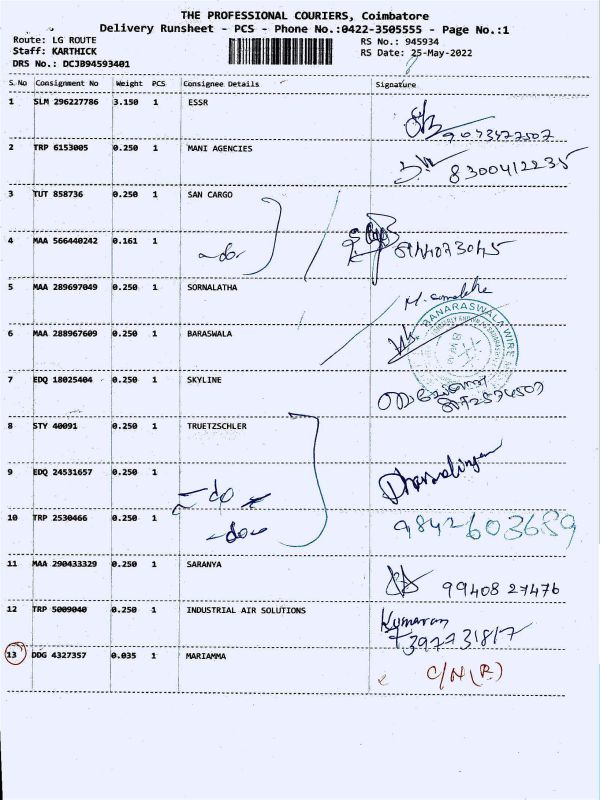 THE PROFESSIONAL COURIERS, Coimbatore
Delivery Runsheet - PCS - Phone No.:0422-3505555 - Page No.:1
Route: LG ROUTE RS No.: 945934
Staff: KARTHICK RS Date: 25-May-2022
DRS No.: DCJB94593401
S.No Consignment No Weight PCS Consignee Details Signature
1 SLM 296227786 3.150 1 ESSR
2 TRP 6153005 0.250 1 MANI AGENCIES 8300412235
3 TUT 858736 0.250 1 SAN CARGO
4 MAA 566440242 0.161 1 -do-
5 MAA 289697049 0.250 1 SORNALATHA
6 MAA 288967609 0.250 1 BARASWALA BANARASWALA WIRE
7 EDQ 18025404 0.250 1 SKYLINE
8 STY 40091 0.250 1 TRUETZSCHLER
9 EDQ 24531657 0.250 1 -do-
10 TRP 2530466 0.250 1 -do- 9842603689
11 MAA 290433329 0.250 1 SARANYA 99408 27476
12 TRP 5009040 0.250 1 INDUSTRIAL AIR SOLUTIONS Kumaran
13 DDG 4327357 0.035 1 MARIAMMA C/N (R)